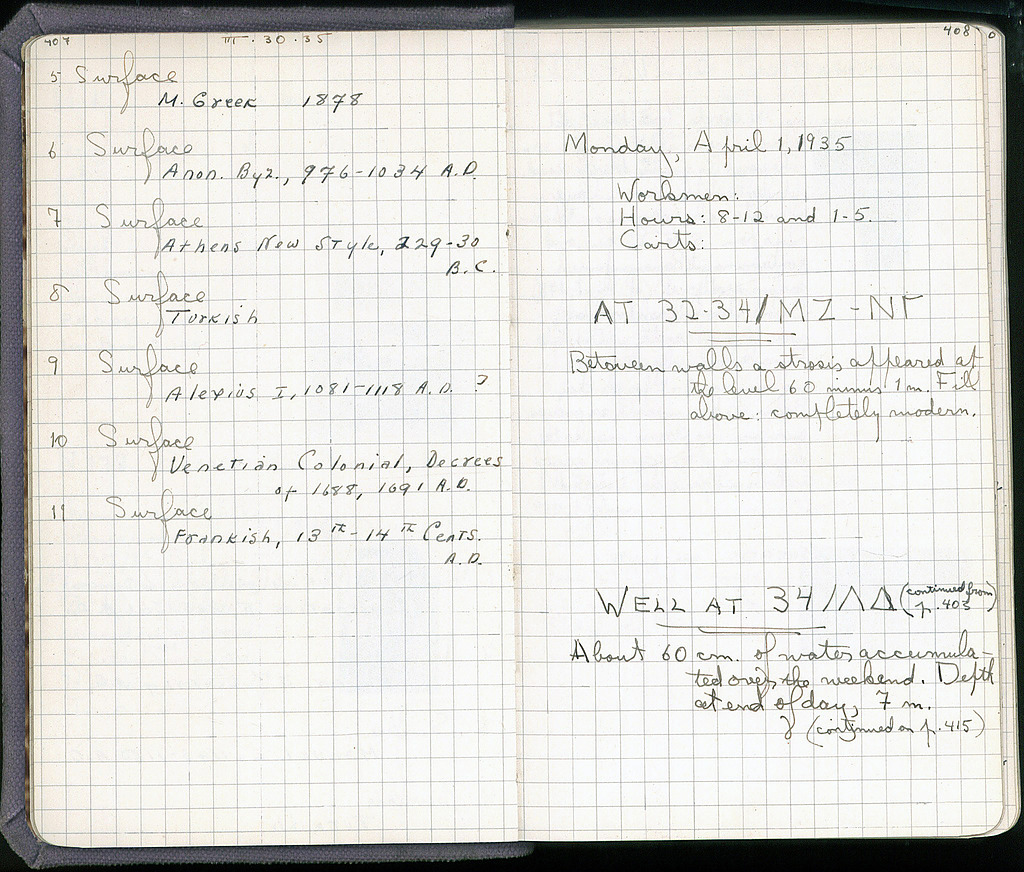 407
III. 30. 35
5 Surface
M. Greek 1878
6 Surface
Anon. Byz., 976-1034 A.D.
7 Surface
Athens New Style, 229-30
B.C.
8 Surface
Turkish
9 Surface
Alexius I, 1081-1118 A.D. ?
10 Surface
Venetian Colonial, Decrees
of 1688, 1691 A.D.
11 Surface
Frankish, 13th-14th Cents.
A.D.
408
Monday, April 1, 1935
Workmen:
Hours: 8-12 and 1-5.
Carts:
AT 32-34/ΜΖ-ΝΓ
Between walls a strosis appeared at
the level 60 minus 1 m. Fill
above: completely modern.
WELL AT 34/ΛΔ (continued from
p. 403)
About 60 cm. of water accumula-
ted over the weekend. Depth
at end of day, 7 m.
(continued on p. 415)